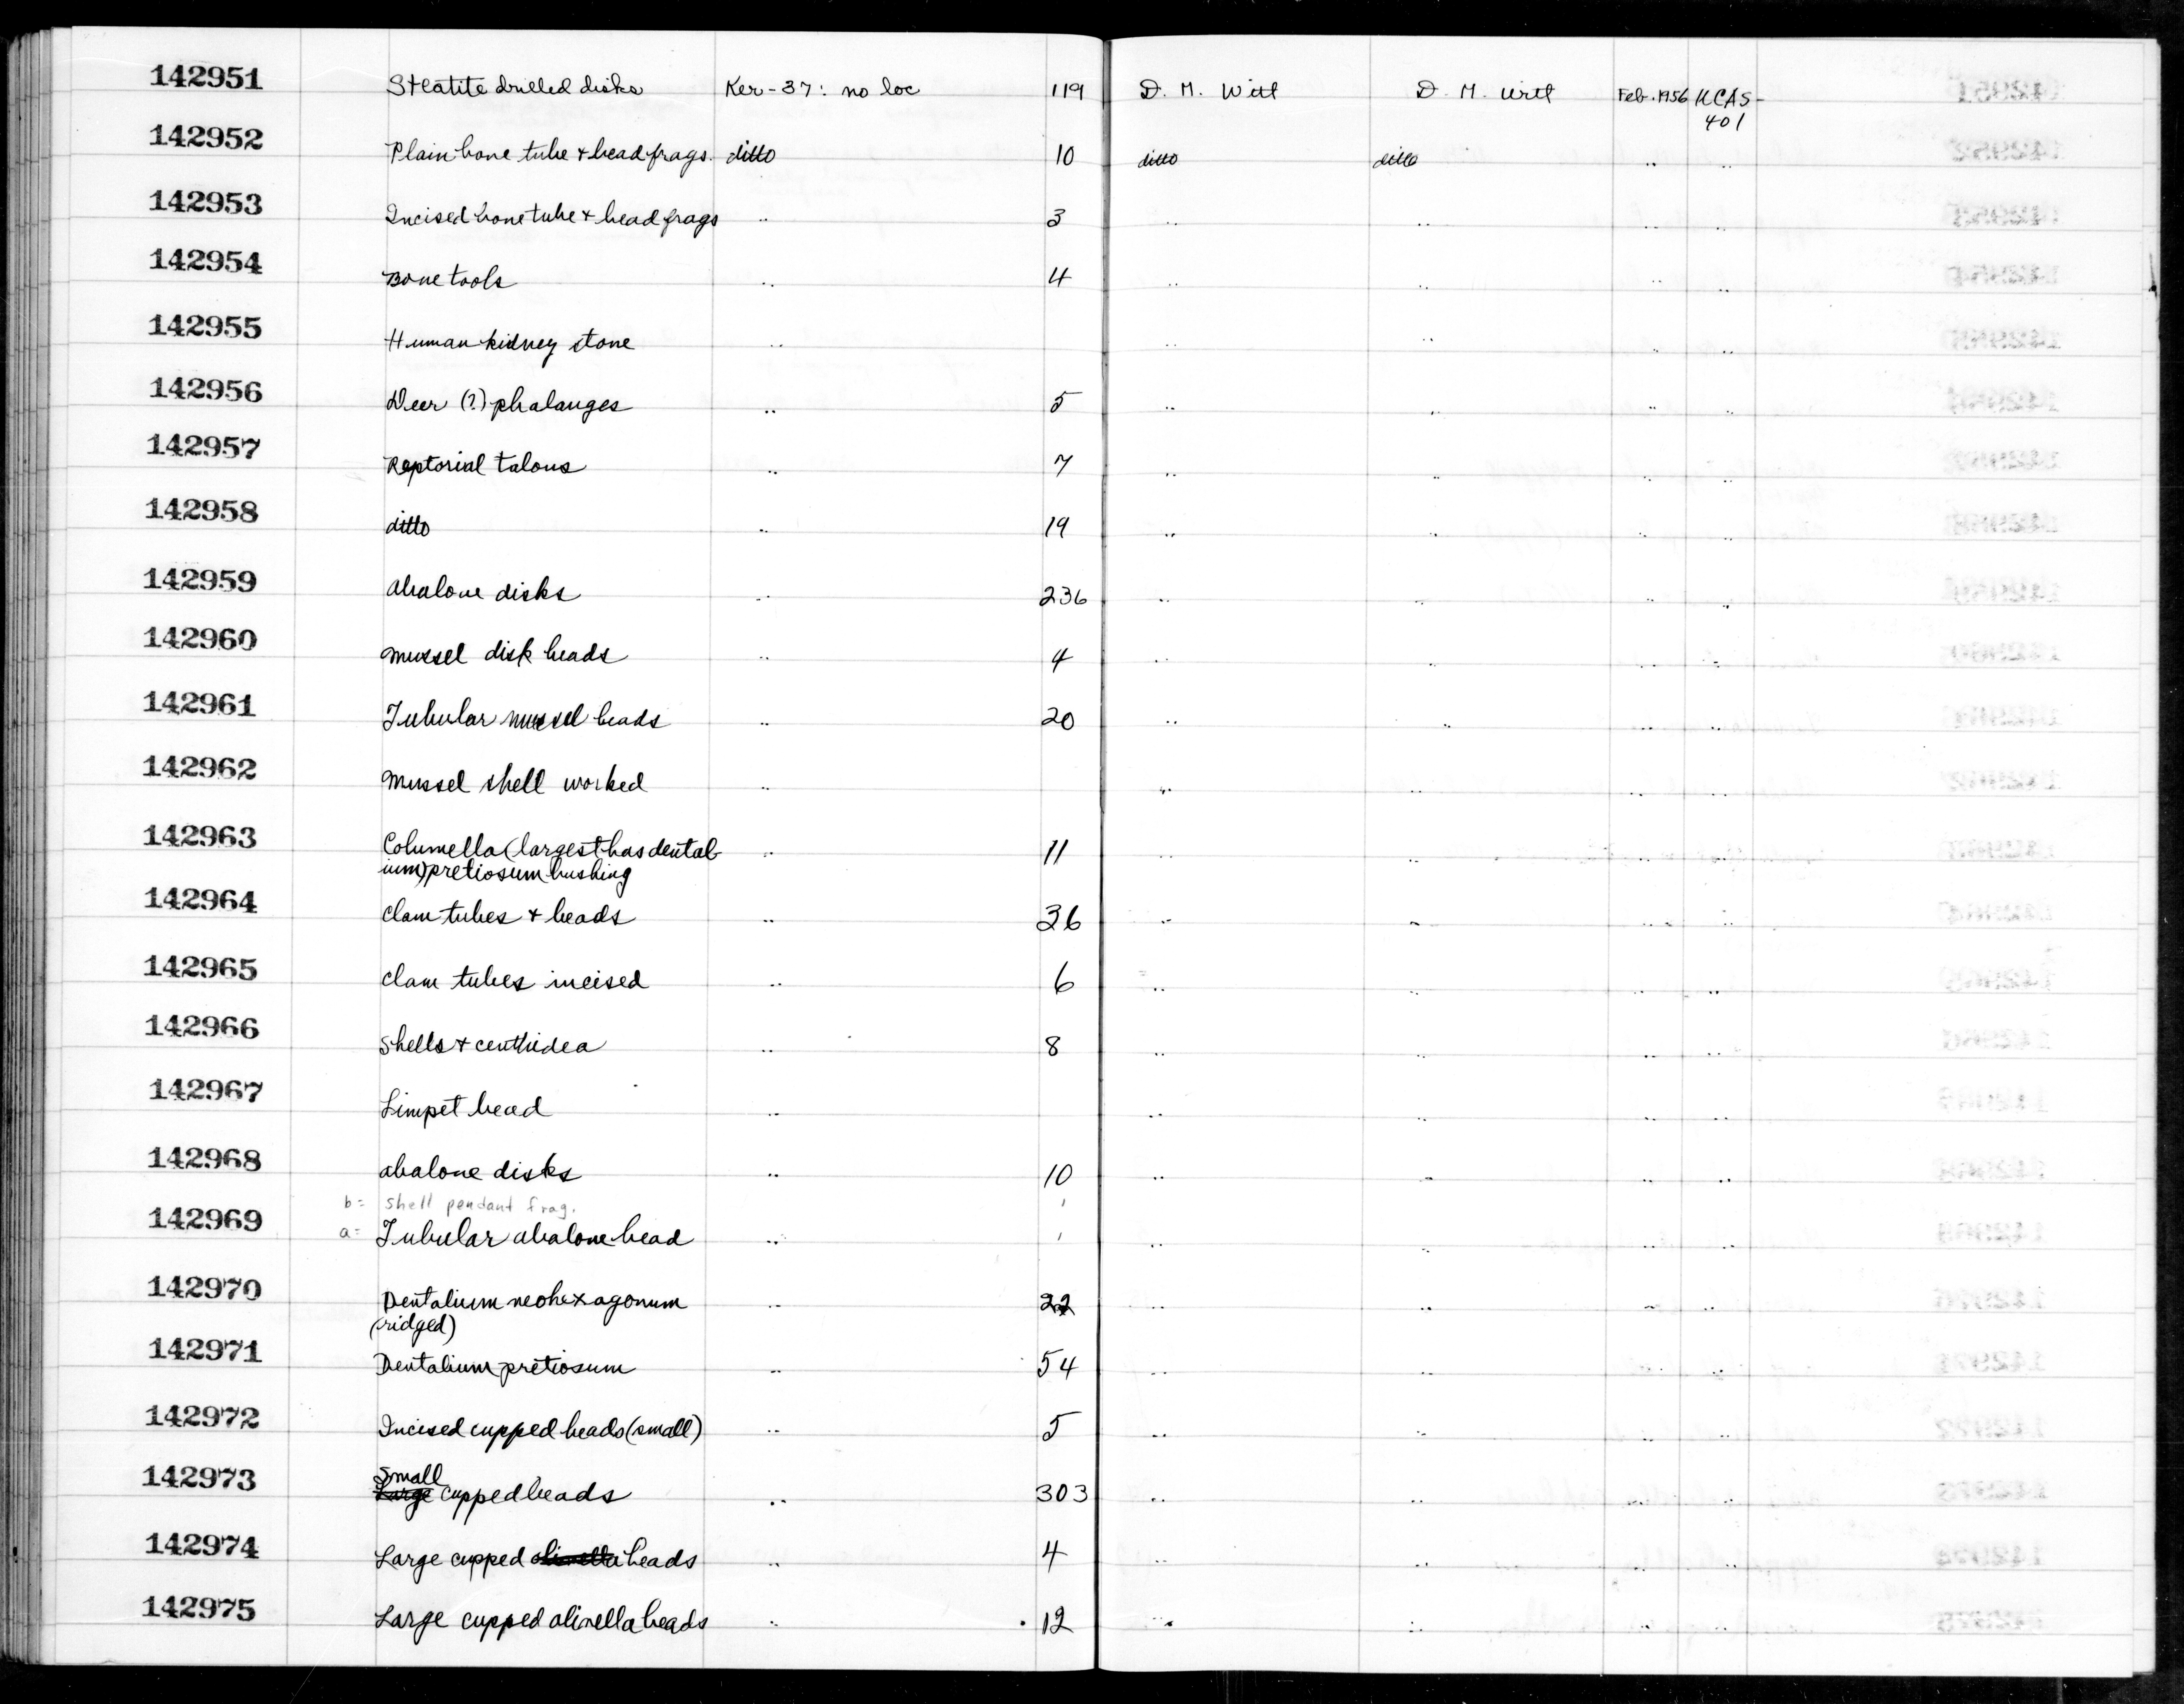 142951 Steatite drilled disks Ker-37: no loc 119 D. M. Witt D. M. Witt Feb. 1956 UCAS-
401
142952 Plain bone tube + bead frags. ditto 10 ditto ditto " "
142953 Incised bone tube + bead frags " 3 " " " "
142954 Bone tools " 4 " " " "
142955 Human kidney stone " " " " "
142956 Deer (?) phalanges " 5 " " " "
142957 Raptorial talons " 7 " " " "
142958 ditto " 19 " " " "
142959 abalone disks " 236 " " " "
142960 mussel disk beads " 4 " " " "
142961 Tubular mussel beads " 20 " " " "
142962 Mussel shell worked " " " " "
142963 Columella (largest has dental- " 11 " " " "
ium) pretiosum bushing
142964 clam tubes + beads " 36 " " " "
142965 clam tubes incised " 6 " " " "
142966 Shells + cerithidea " 8 " " " "
142967 Limpet bead " " " " "
142968 abalone disks " 10 " " " "
b= shell pendant frag. 1
142969 a= Tubular abalone bead " 1 " " " "
142970 Dentalium neohexagonum " 22 " " " "
(ridged)
142971 Dentalium pretiosum " 54 " " " "
142972 Incised cupped beads (small) " 5 " " " "
Small
142973 Large cupped beads " 303 " " " "
142974 Large cupped olivella beads " 4 " " " "
142975 Large cupped olivella beads " 12 " " " "